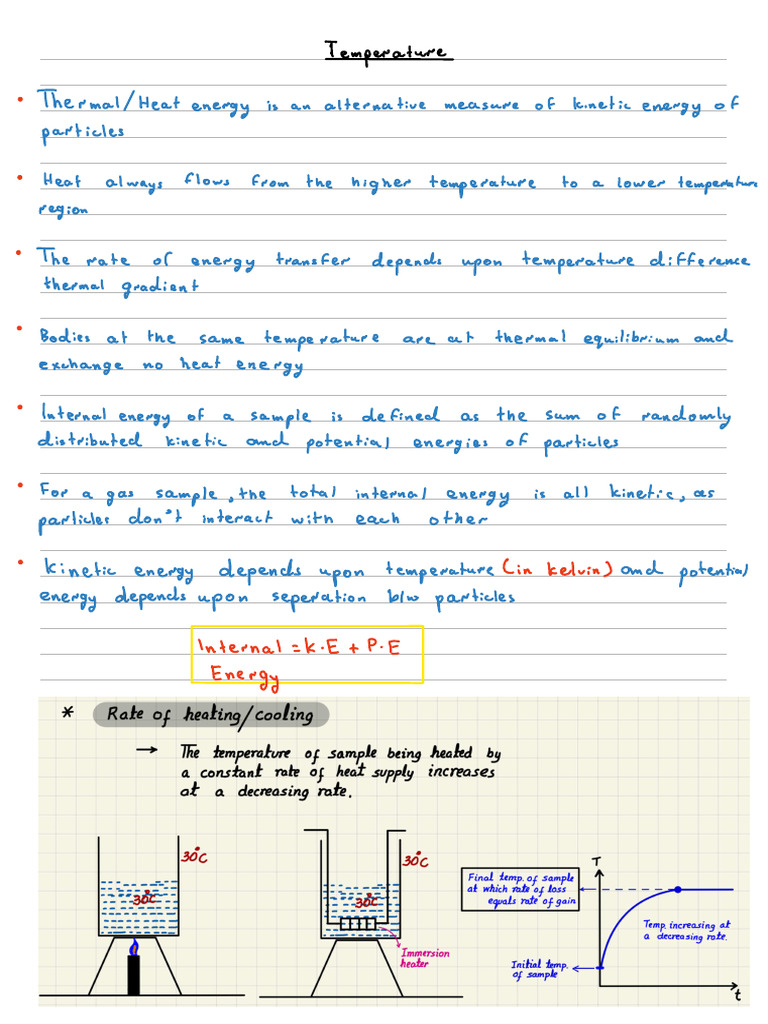 Temperature
• Thermal/Heat energy is an alternative measure of kinetic energy of
particles
• Heat always flows from the higher temperature to a lower temperature
region
• The rate of energy transfer depends upon temperature difference
thermal gradient
• Bodies at the same temperature are at thermal equilibrium and
exchange no heat energy
• Internal energy of a sample is defined as the sum of randomly
distributed kinetic and potential energies of particles
• For a gas sample, the total internal energy is all kinetic, as
particles don't interact with each other
• Kinetic energy depends upon temperature (in kelvin) and potential
energy depends upon seperation b/w particles
Internal = K.E + P.E
Energy
* Rate of heating/cooling
→ The temperature of sample being heated by
a constant rate of heat supply increases
at a decreasing rate.
30°C
30°C
30°C
30°C
Immersion
heater
Final temp. of sample
at which rate of loss
equals rate of gain
T
Temp. increasing at
a decreasing rate.
Initial temp.
of sample
t